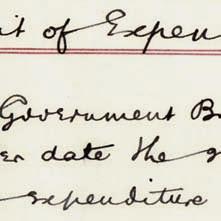 of Expen
Government B
date the
expenditure